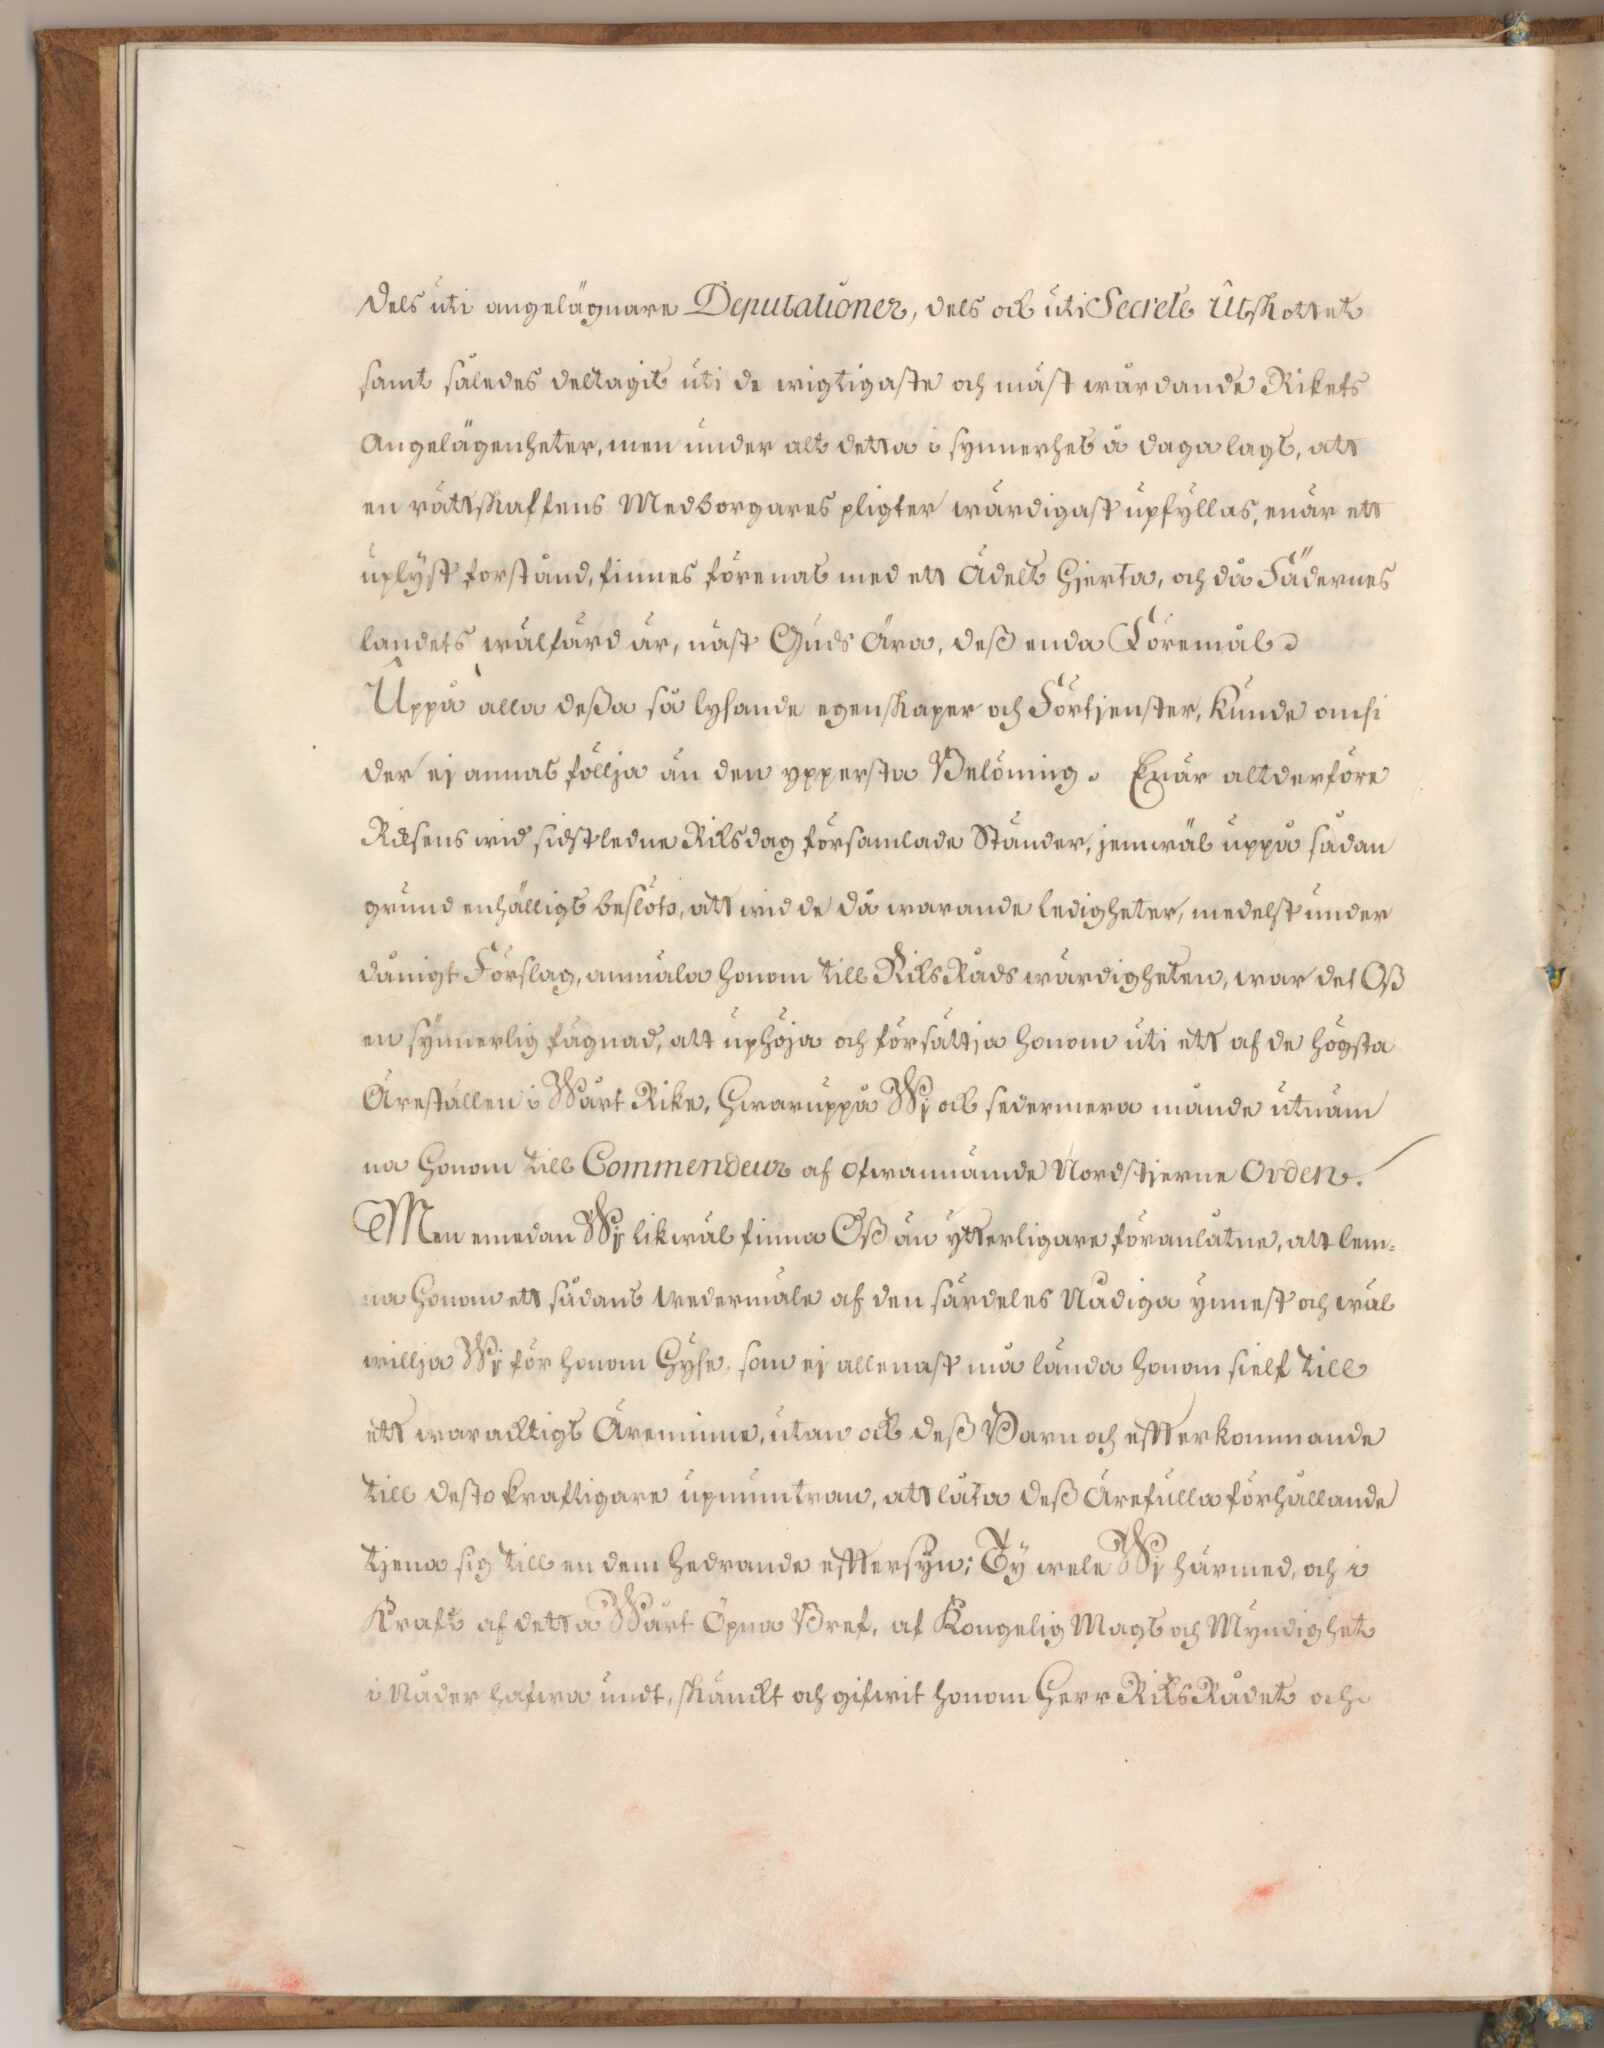 dels uti angelägnare Deputationer, dels ock uti Secrete Utskottet
samt således deltagit uti de wigtigaste och mäst wårdande Rikets
Angelägenheter, men under alt detta i synnerhet å daga lagt, att
en rättskaffens Medborgares pligter wärdigast upfyllas, enär ett
uplyst förstånd, finnes förenat med ett Ädelt Hjerta, och då Fädernes
landets wälfärd är, näst Guds Ära, deß enda Föremål.
Uppå alla deßa så lysande egenskaper och Förtjenster, kunde omsi
der ej annat föllja än den yppersta Belöning. Enär altderföre
Riksens wid sidstledne Riksdag församlade Ständer, jemwäl uppå sådan
grund enhälligt beslöto, att wid de då warande ledigheter, medelst under
dånigt Förslag, anmäla honom till RiksRåds wärdigheten, war det Oß
en synnerlig fägnad, att uphöja och försättja honom uti ett af de högsta
Äreställen i Wårt Rike, Hwaruppå Wj ock sedermera månde utnäm
na Honom till Commendeur af ofwannämde Nordstjerne Orden.
Men emedan Wj likwäl finna Oß än ytterligare föranlåtne, att lem-
na Honom ett sådant wedermäle af den särdeles Nådiga ynnest och wäl
willja Wj för honom Hyse, som ej allenast må lända honom sielf till
ett waracktigt Äreminne, utan ock deß Barn och effterkommande
till desto kraftigare upmuntran, att låta deß Ärefulla förhållande
tjena sig till en dem hedrande efftersyn; Ty wele Wj härmed, och i
Kraft af detta Wårt Öpna Bref, af Kongelig Magt och Myndighet
i Nåder hafwa undt, skänckt och gifwit honom Herr RiksRådet och